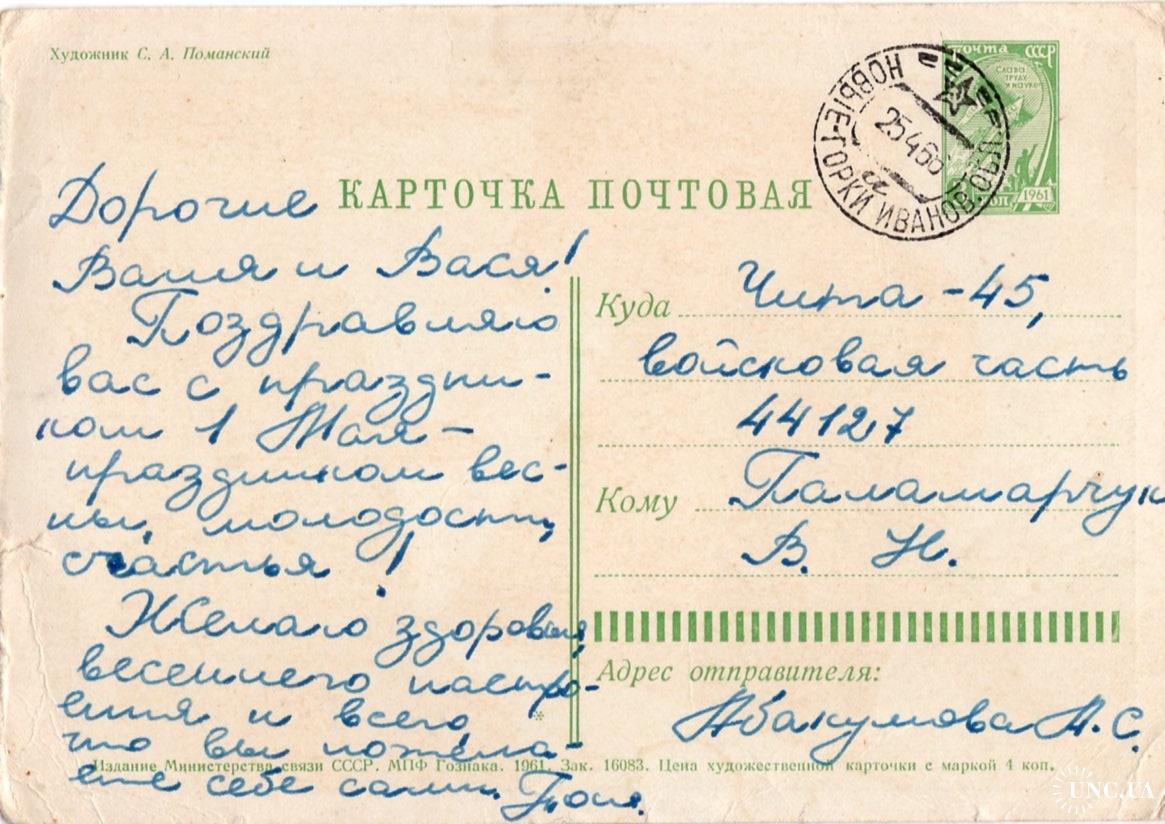 Художник С. А. Поманский
КАРТОЧКА ПОЧТОВАЯ
ПОЧТА СССР
СЛАВА
ТРУДУ
И НАУКЕ
1961
НОВЫЕ-ГОРКИ ИВАНОВ. ОБЛ.
25 4 66
а
Дорогие
Валя и Вася!
Поздравляю
вас с праздни-
ком 1 Мая –
праздником вес-
ны, молодости,
счастья!
Желаю здоровья,
весеннего настро-
ения и всего,
что вы пожела-
ете себе сами. Тося.
Куда Чита – 45,
войсковая часть
44127
Кому Паламарчук
В. Н.
Адрес отправителя:
Абакумова А. С.
Издание Министерства связи СССР. МПФ Гознака. 1961. Зак. 16083. Цена художественной карточки с маркой 4 коп.
UNC.UA